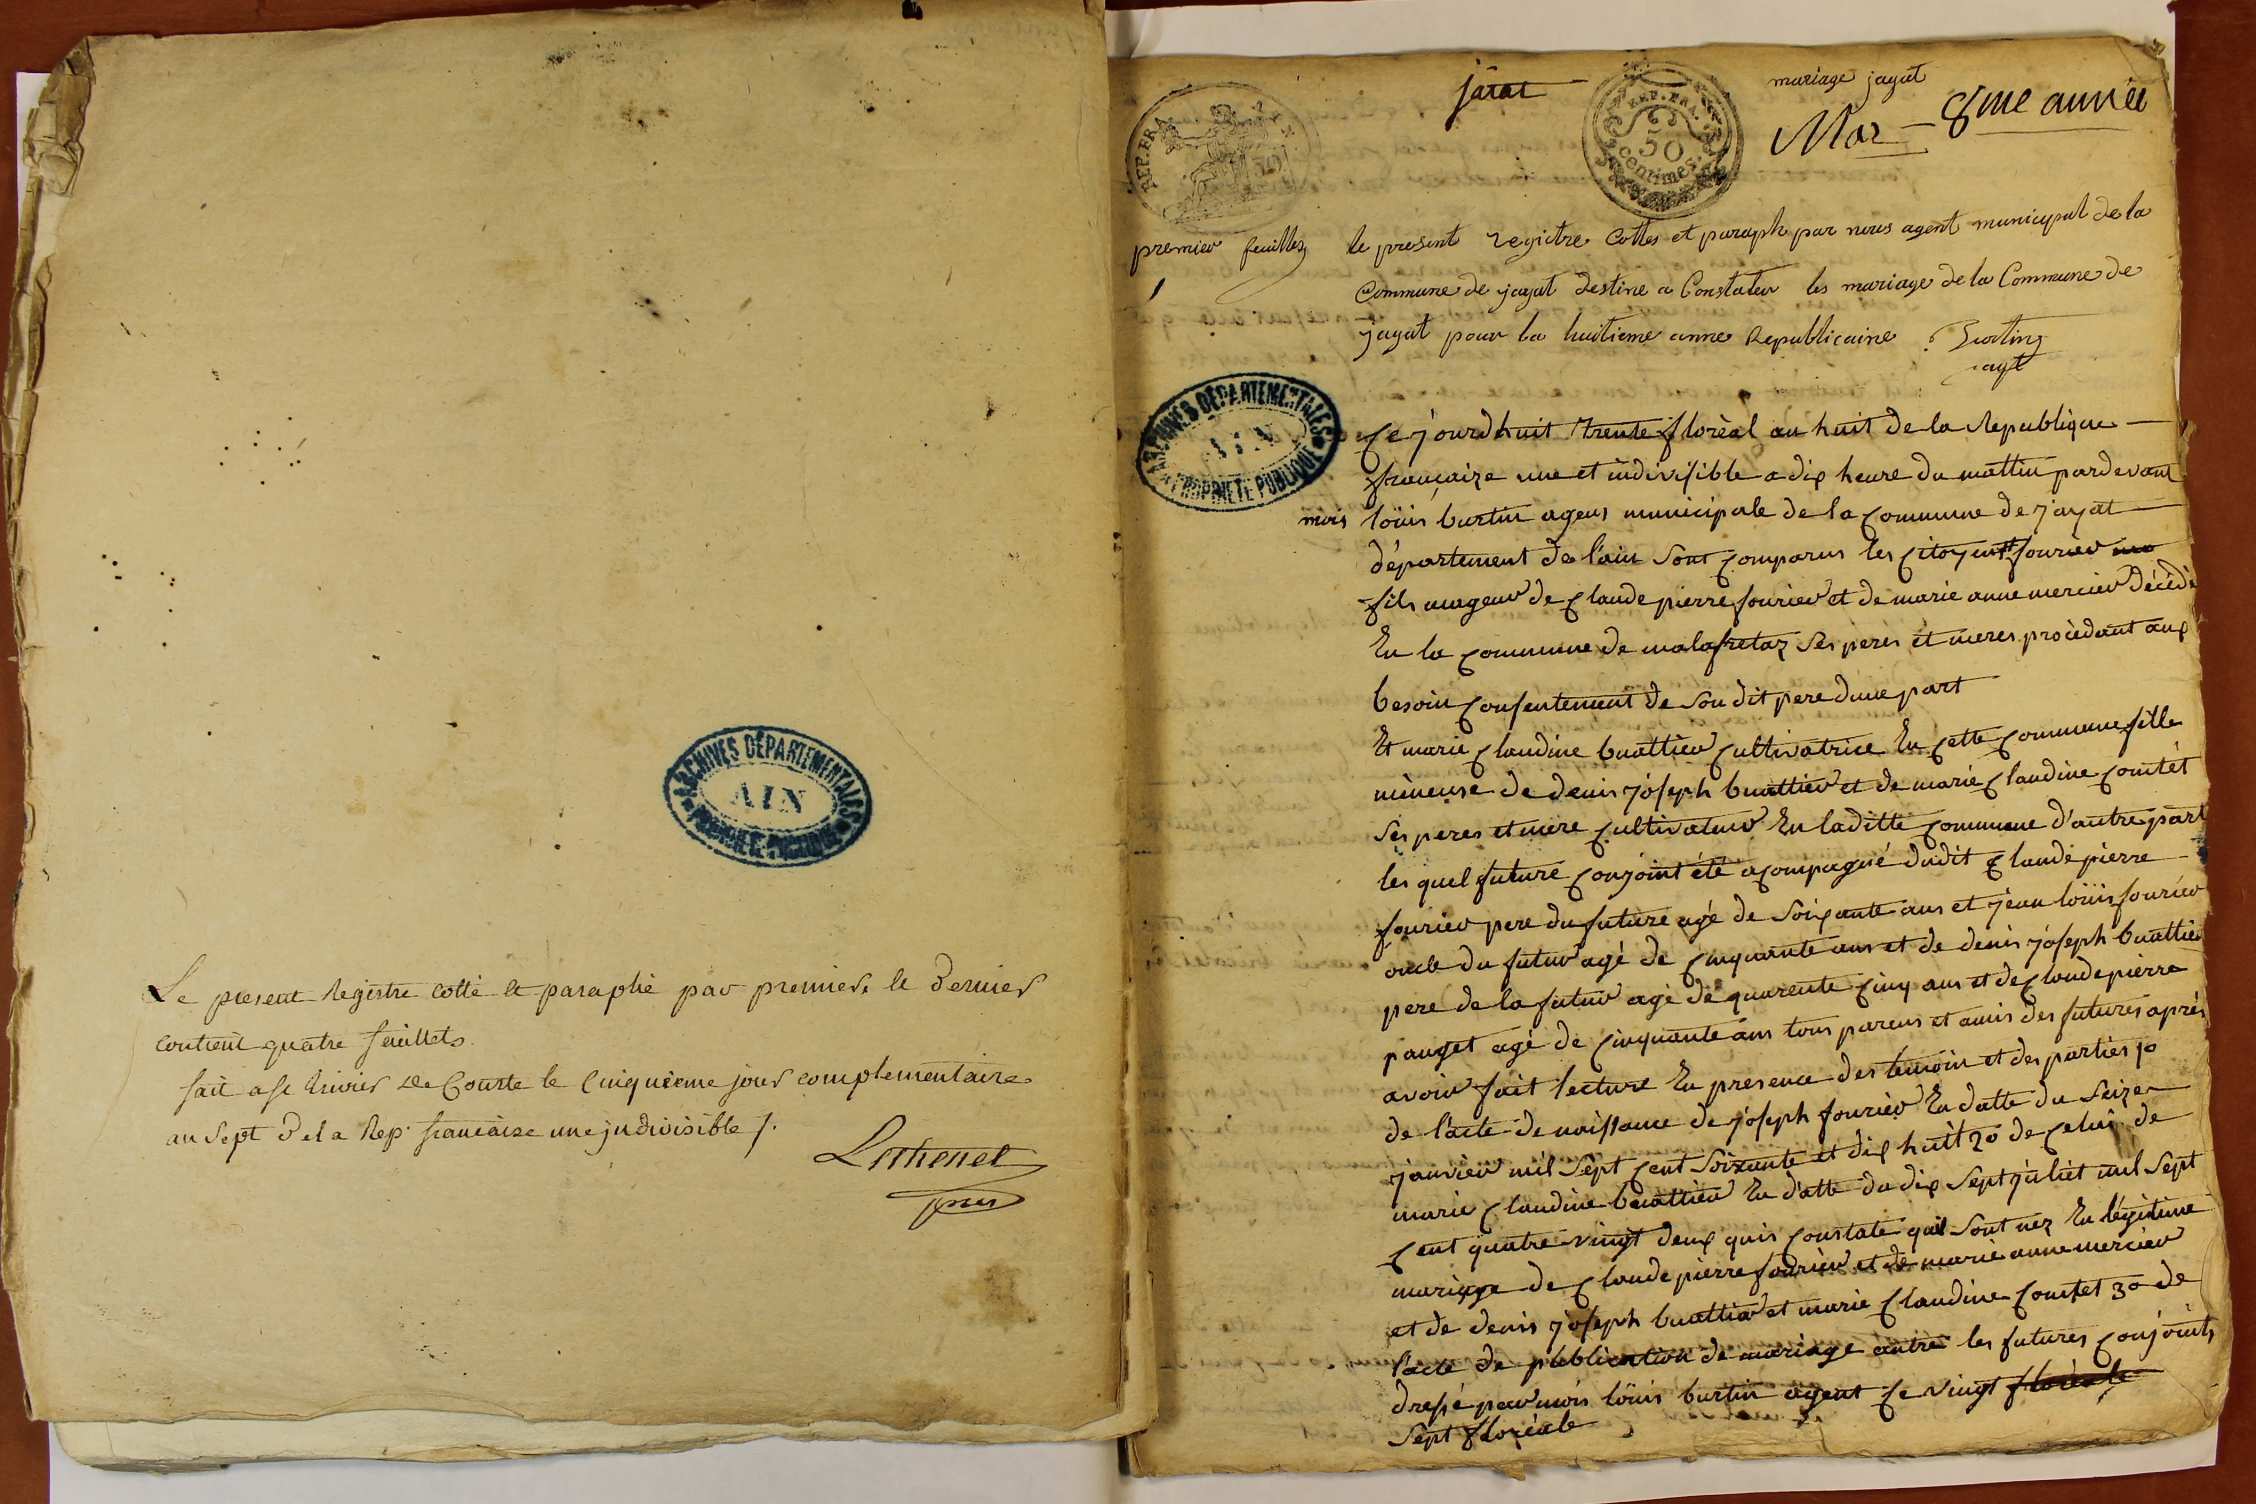 Le present Registre cotté et paraphé par premier & dernier
contient quatre feüillets.
fait a St trivier de Courte le Cinquieme jour complementaire
an Sept de la Rep. francaise une indivisible /.
ARCHIVES DÉPARTEMENTALES
AIN
PROPRIÉTÉ PUBLIQUE
REP. FRA.
jaÿat
REP. FRA.
50
centimes.
mariage jayat
Mar - 8me année
premier feuillez
1
le present regictre Cottes et paraph par nous agent municypal de la
Commune de jayat destine a Constater les mariage de la Commune de
jayat pour la huitieme anne Republicaine Burtin
agt
ARCHIVES DÉPARTEMENTALES
AIN
PROPRIÉTÉ PUBLIQUE
Ce jourdhuit trente florèal an huit de la Republique
françaize une et indivisible a dix heure du mattin pardevant
mois loüis burtin agens municipale de la Commune de jayat
département de l'ain sont Comparus les Citoyens fourier
fils mageur de Claude pierre fourier et de marie anne mercier décédé
En la Commune de malafretaz Ses peres et meres procèdant aux
besoin Consentement de Son dit pere dune part
Et marie Claudine buattier Cultivatrice En Cette Commune fille
mineuse de denis jóseph buattier et de marie Claudine Comtét
Ses peres et mere Cultivateur En laditte Commune d'autre part
les quel future Conjoint été acompagné dudit Claude pierre
fourier pere du future agé de Soixante ans et jean loüis fourier
oncle du futur agé de Cinquante ans et de denis jóseph buattier
pere de la futur agé de quarente Cinq ans et de Claude pierre
pauget agé de Cinquante ans tous parens et amis des futures aprés
avoir fait lecture En presence des temoin et des parties 1o
de l'acte de naissance de jóseph fourier En datte du Seize
janvier mil Sept Cent Soixante et dix huit 2o de Celui de
marie Claudine buattier En datte du dix Sept juliét mil Sept
Cent quatre vingt deux quis Constate quil Sont nez En légitime
mariage de Claude pierre fourier et de marie anne mercier
et de denis jóseph buattier et marie Claudine Comtet 3o de
l'acte de publication de mariage entre les futures Conjoints
dressé par mois loüis burtin agent Ce vingt florèale
Sept florèale